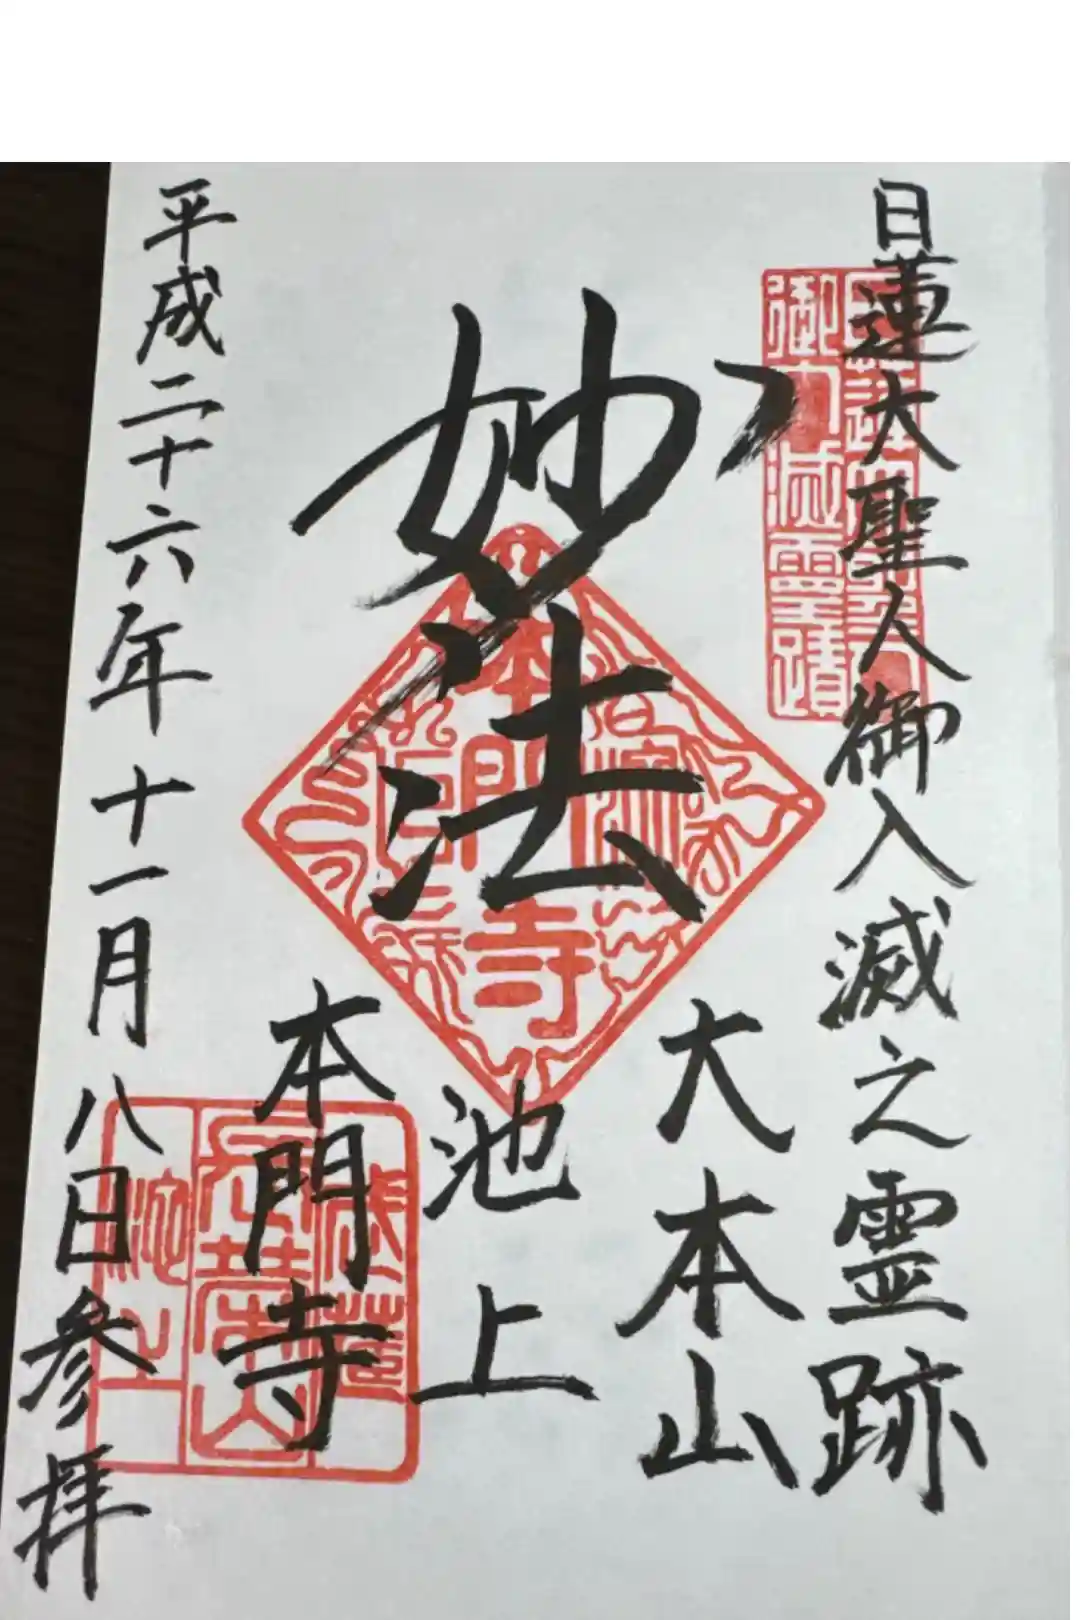 日蓮大聖人御入滅之霊跡
大本山
妙法
池上
本門寺
平成二十六年十一月八日参拝
御入滅靈蹟
本門寺